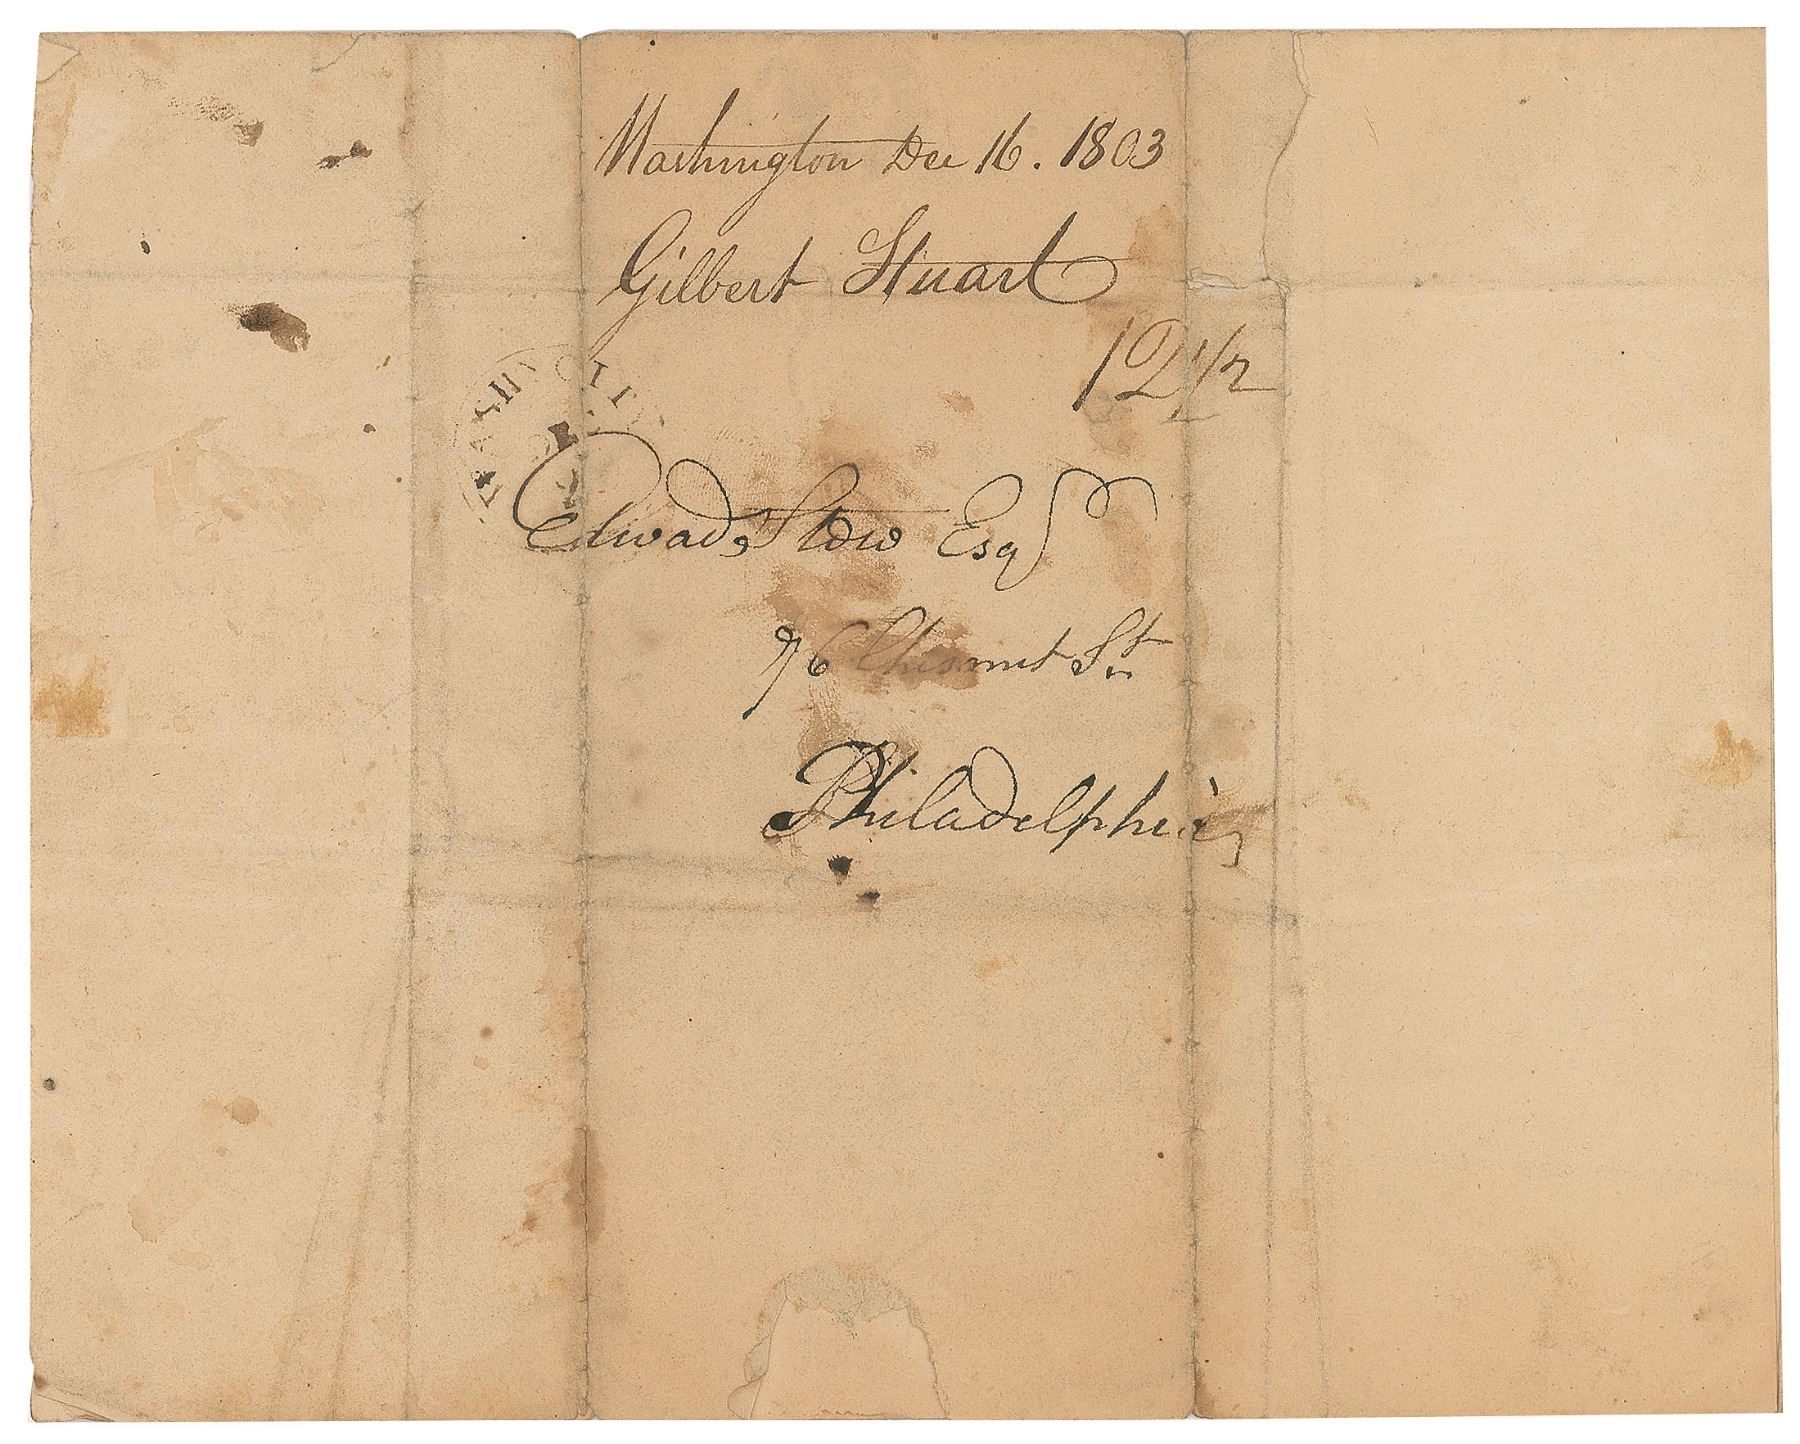 Washington Dec 16. 1803
Gilbert Stuart
12 1/2
Edwad Stow Esqr
76 Chesnut St
Philadelphia